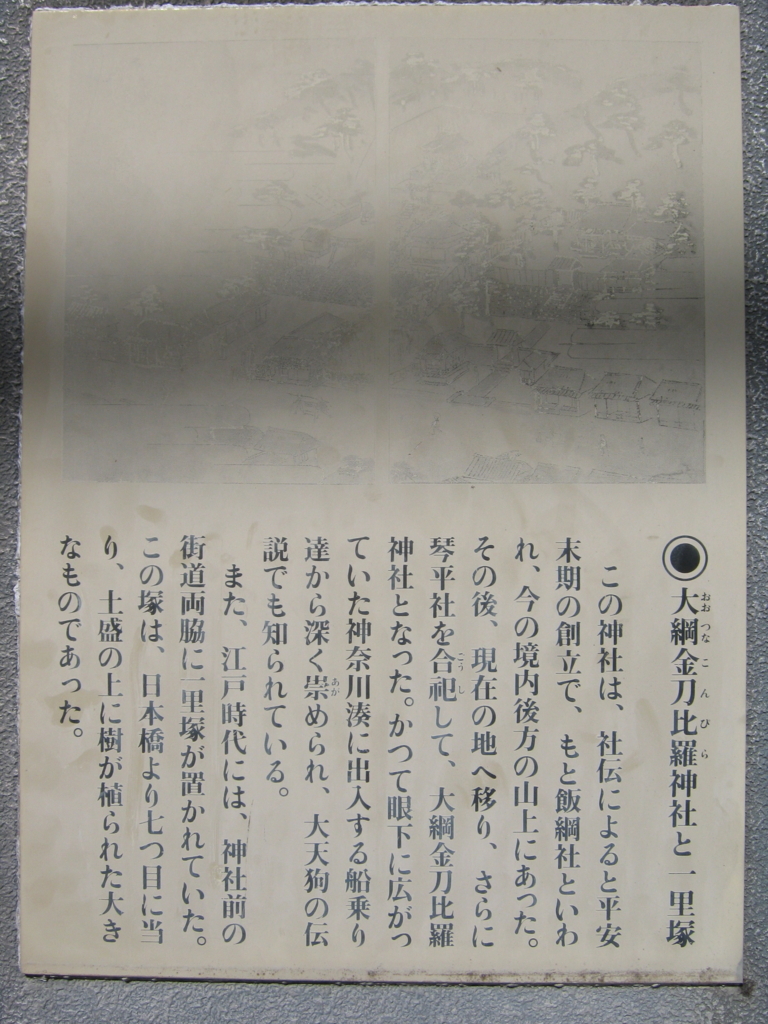 大綱金刀比羅神社と一里塚
おおつなこんぴら
この神社は、社伝によると平安
末期の創立で、もと飯綱社といわ
れ、今の境内後方の山上にあった。
その後、現在の地へ移り、さらに
琴平社を合祀して、大綱金刀比羅
ごうし
神社となった。かつて眼下に広がっ
ていた神奈川湊に出入する船乗り
達から深く崇められ、大天狗の伝
あが
説でも知られている。
また、江戸時代には、神社前の
街道両脇に一里塚が置かれていた。
この塚は、日本橋より七つ目に当
り、土盛の上に樹が植られた大き
なものであった。